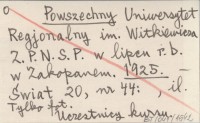 Powszechny Uniwersytet
Regjonalny im. Witkiewicza
Z.P.N.S.P. w lipcu r.b.
w Zakopanem. 1925. —
Świat 20, nr 44: , il.
Tylko fot.
Uczestnicy kursu.